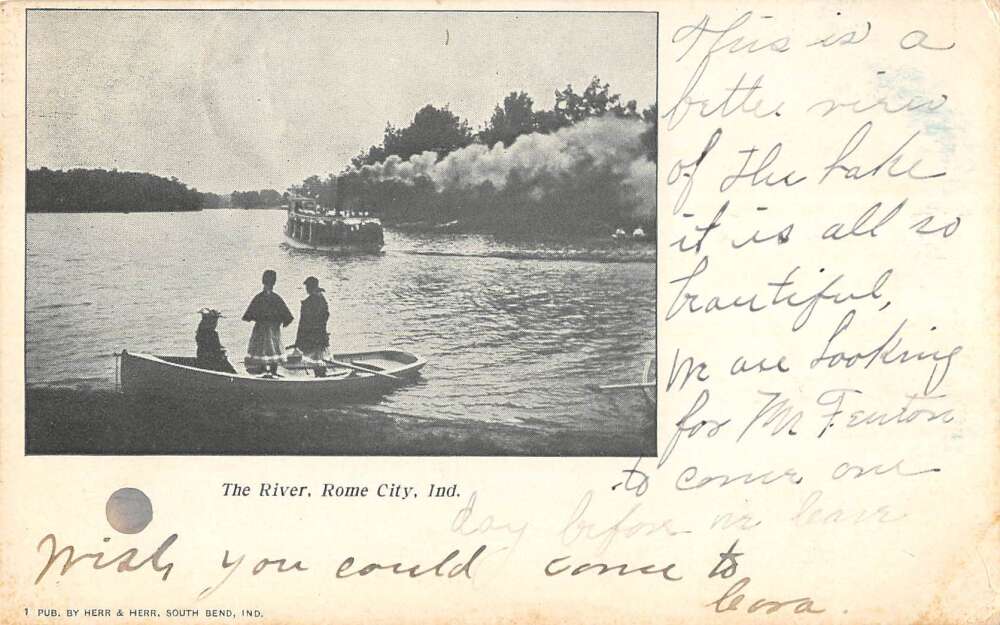 This is a
better view
of the Lake
it is all so
beautiful,
We are Looking
for Mr Fenton
to come one
day before we leave
Wish you could come to
Cora.
The River, Rome City, Ind.
1 PUB. BY HERR & HERR, SOUTH BEND, IND.